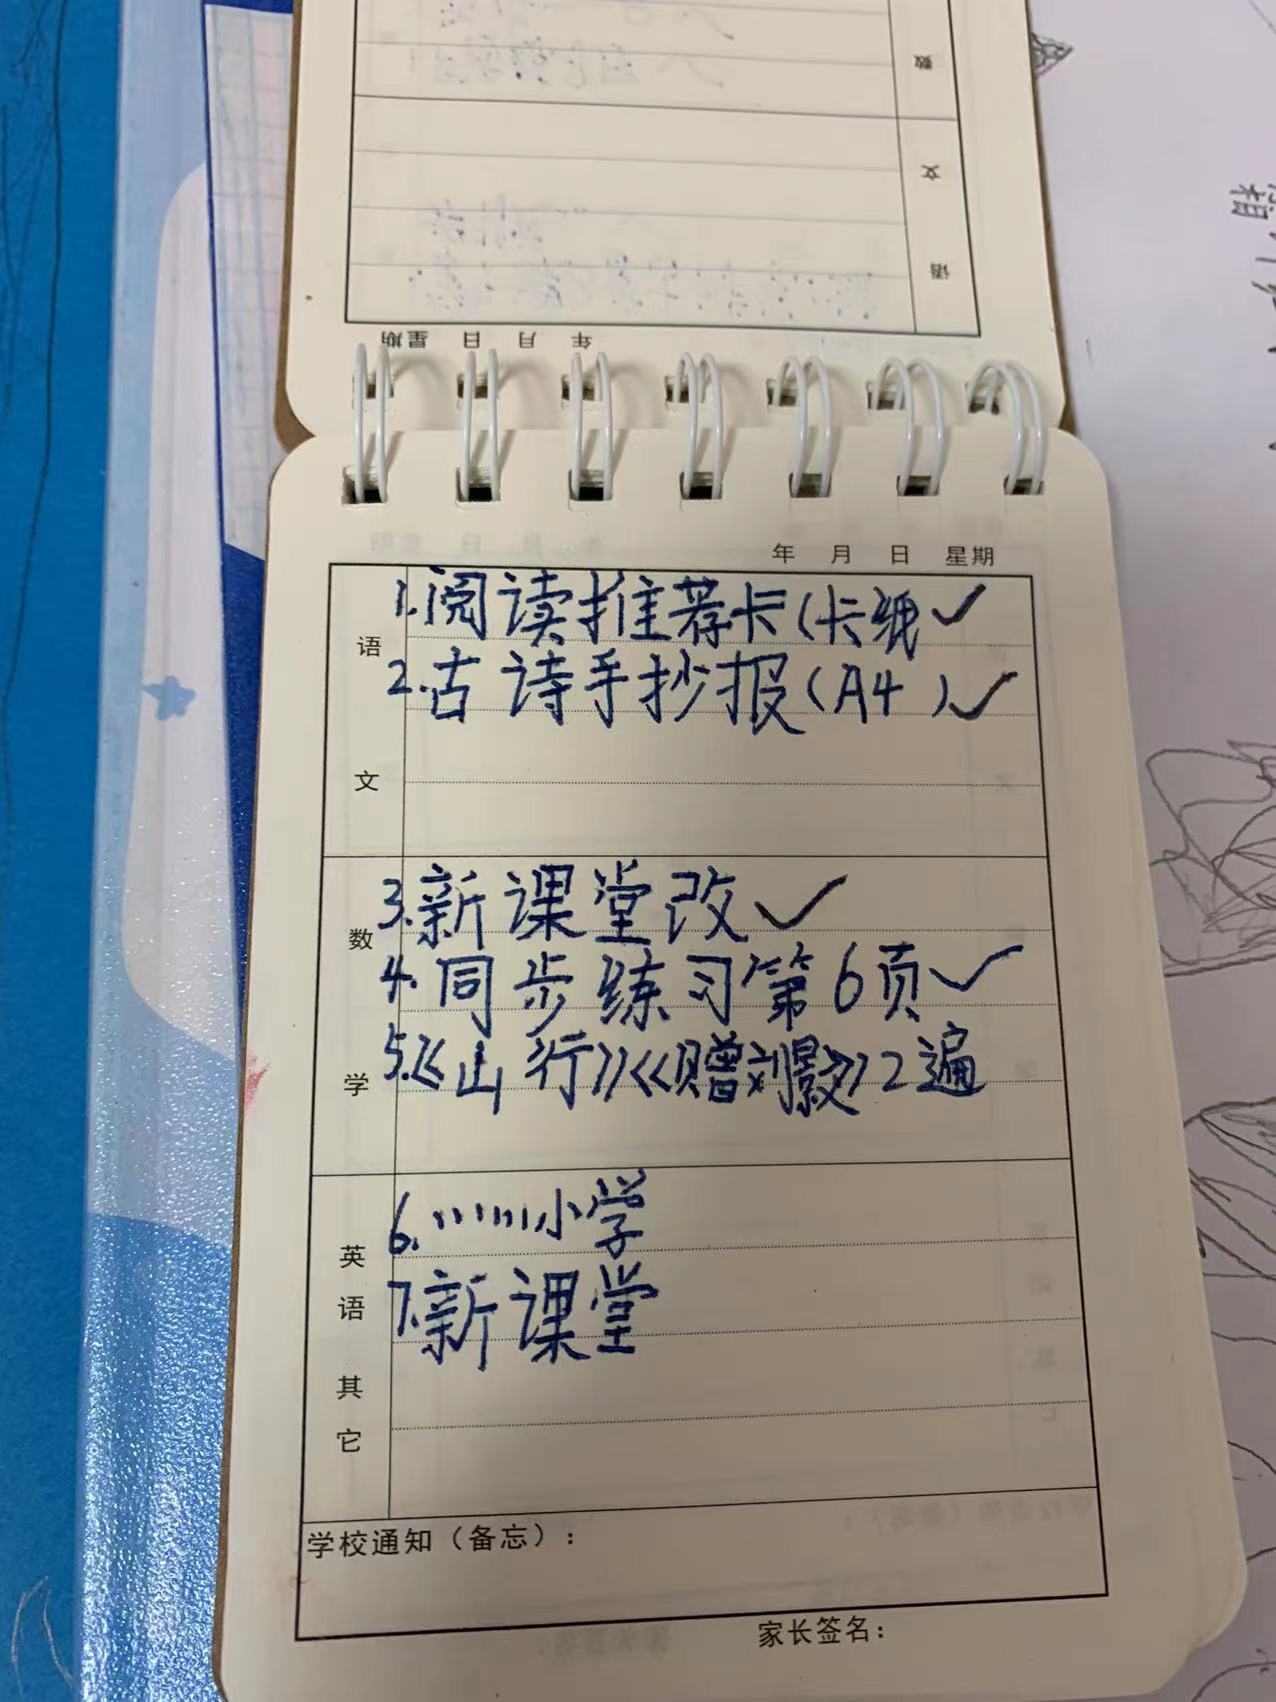 数
文
语
年 月 日 星期
年 月 日 星期
语
文
1.阅读推荐卡(卡纸✓
2.古诗手抄报(A4)✓
数
学
3.新课堂改✓
4.同步练习第6页✓
5.《山行》《赠刘景文》2遍
英
语
其
它
6.……小学
7.新课堂
学校通知(备忘):
家长签名: